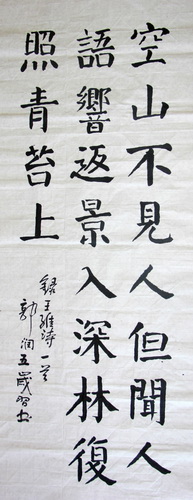 空山不見人但聞人
語響返景入深林復
照青苔上
録王維詩一首
郭润五歲習书